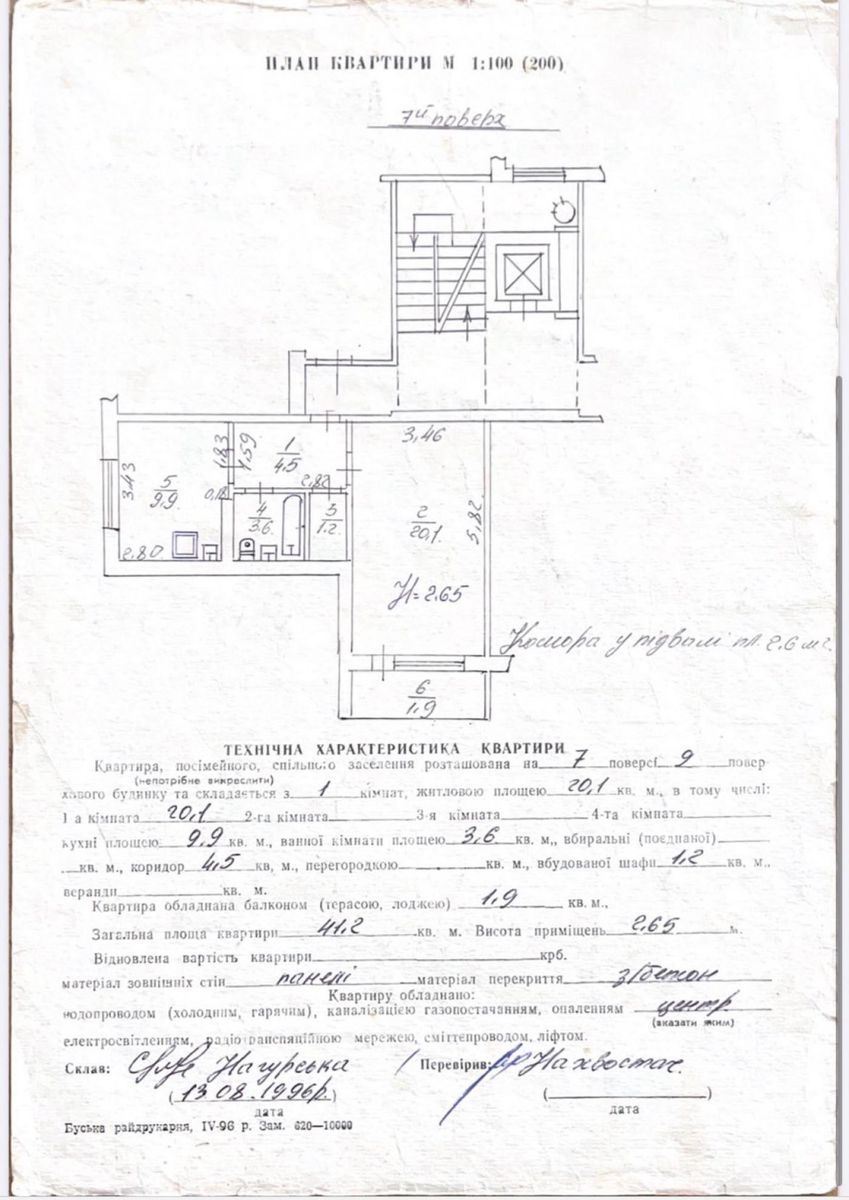 ПЛАН КВАРТИРИ М 1:100 (200)
7й поверх
3,46
1,83
1,59
1
4.5
3,43
5
9.9
2,82
0,18
4
3.6
3
1.2
2
20,1
5,82
2,80
H=2.65
Комора у підвалі пл. 2.6 м²
6
1.9
ТЕХНІЧНА ХАРАКТЕРИСТИКА КВАРТИРИ
Квартира, посімейного, спільного заселення розташована на 7 поверсі 9 повер-
(непотрібне викреслити)
хового будинку та складається з 1 кімнат, житловою площею 20,1 кв. м., в тому числі:
1 а кімната 20,1 2-га кімната 3-я кімната 4-та кімната
кухні площею 9,9 кв. м., ванної кімнати площею 3,6 кв. м,, вбиральні (поєднаної)
кв. м., коридор 4,5 кв, м., перегородкою кв. м., вбудованої шафи 1,2 кв. м.,
веранди кв. м.
Квартира обладнана балконом (терасою, лоджею) 1,9 кв. м.,
Загальна площа квартири 41,2 кв. м. Висота приміщень 2,65 м.
Відновлена вартість квартири крб.
матеріал зовнішніх стін панелі матеріал перекриття з/бетон
Квартиру обладнано:
водопроводом (холодним, гарячим), каналізацією газопостачанням, опаленням центр.
(вказати яким)
електросвітленням, радіотрансляційною мережею, сміттепроводом, ліфтом.
Склав: Нагурська Перевірив:
(13.08.1996р.) ( )
дата дата
Буська райдрукарня, IV-96 р. Зам. 620—10000